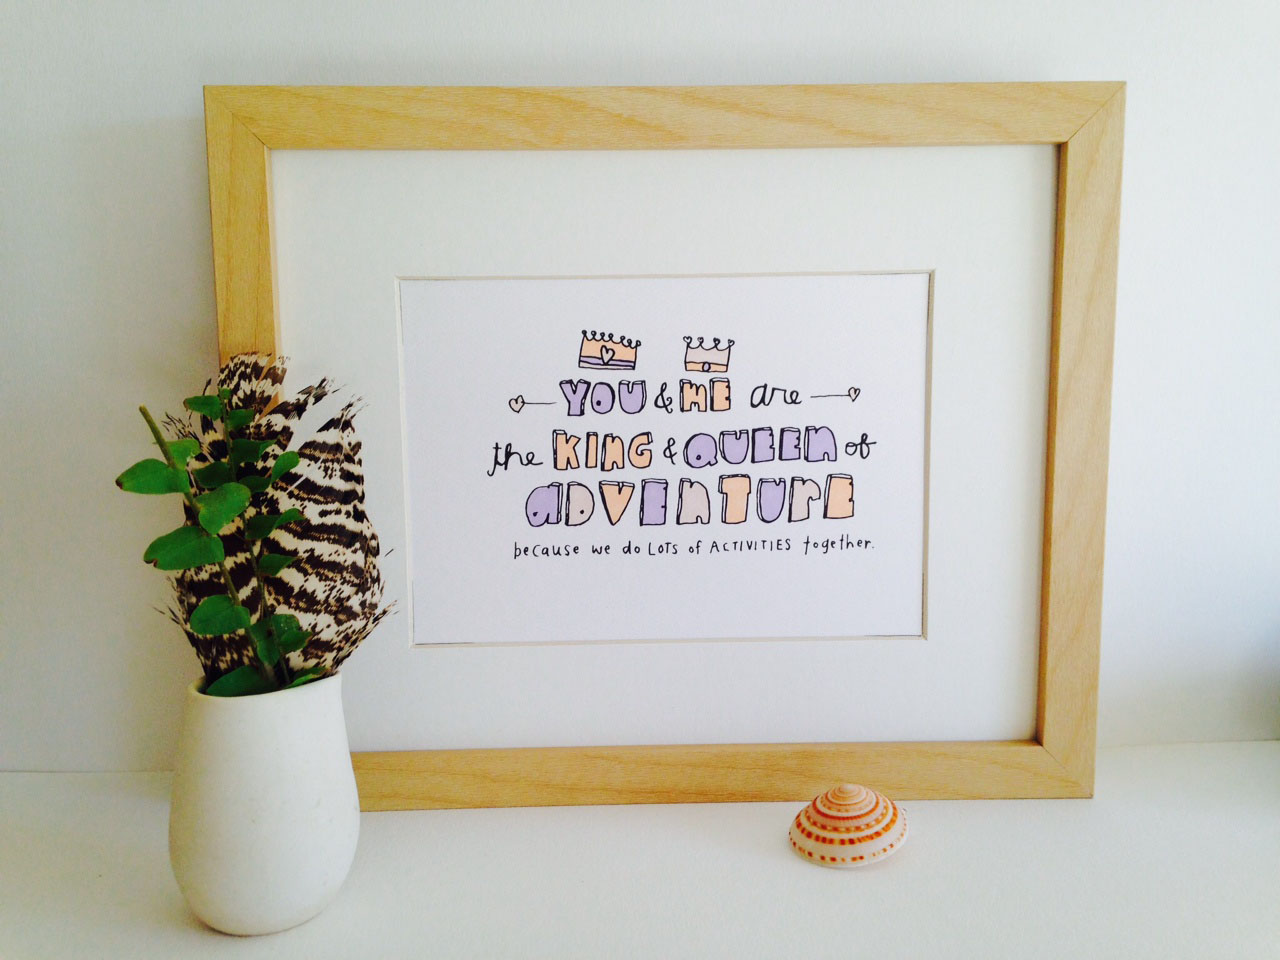 YOU & ME are
the KING & QUEEN of
ADVENTURE
because we do LOTS of ACTIVITIES together.